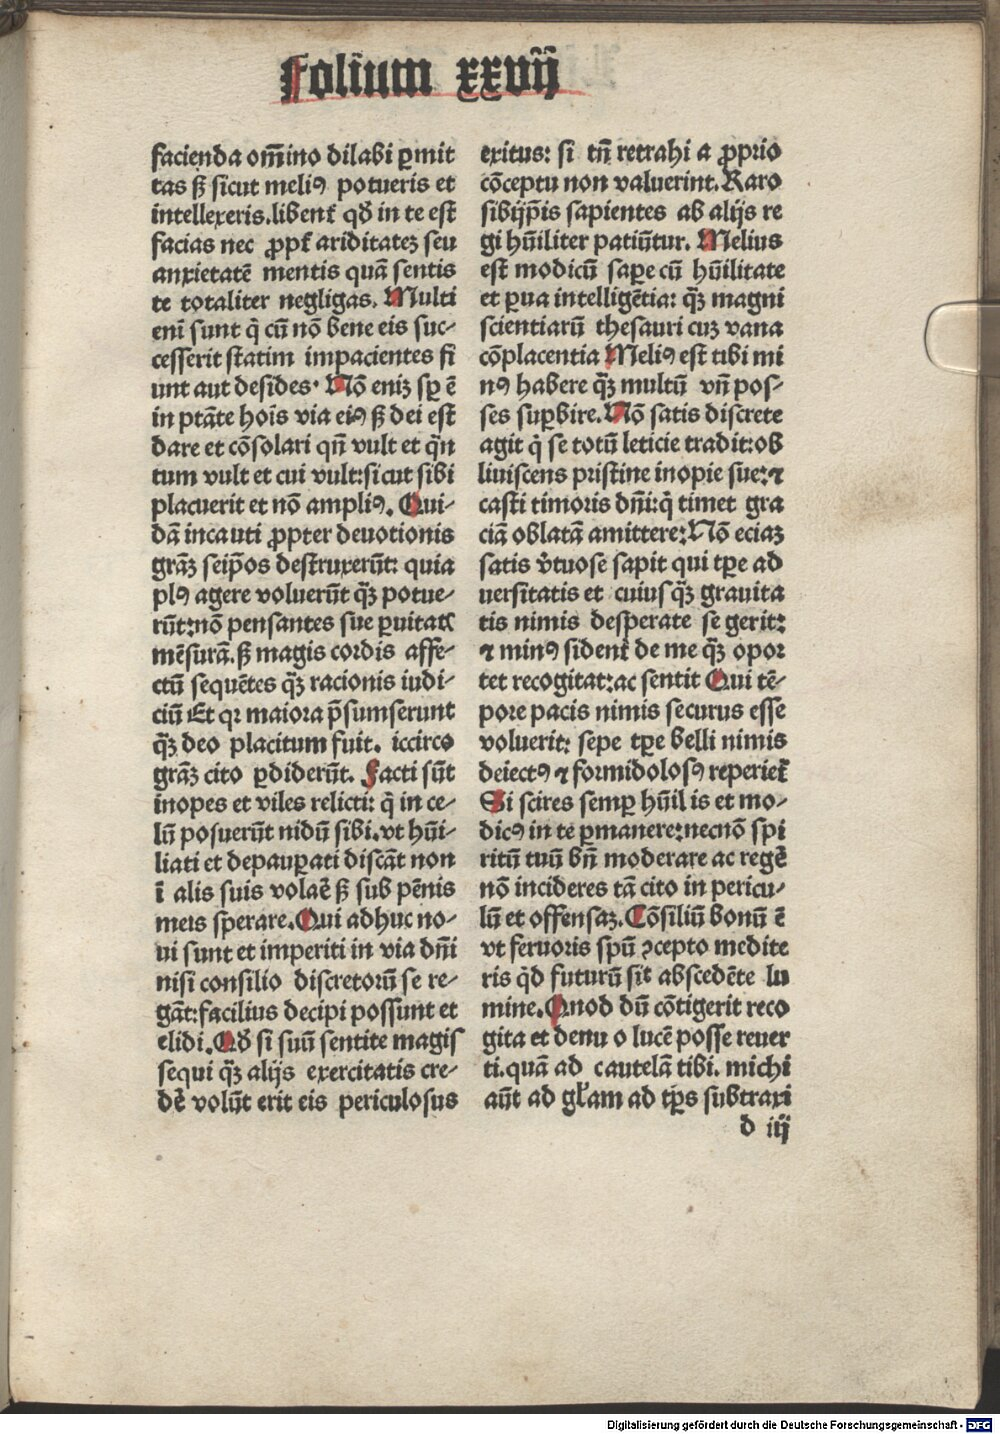 Foliũm xxvĩĩ
facienda om̃ino dilabi ꝑmit
tas ꝫ̃ sicut meliꝰ potueris et
intellexeris.libenť qđ in te est
facias nec ꝓpť ariditateꝫ seu
anxietatẽ mentis quã sentis
te totaliter negligas. Multi
enĩ sunt q̇ cũ nõ bene eis suc⸗
cesserit statim impacientes fi
unt aut desides· Nõ enĩꝫ sꝑ ẽ
in ptãte hoĩs via eiꝰ ſꝫ dei est
dare et cõsolari qñ vult et q̃n
tum vult et cui vult:sicut sibi
placuerit et nõ ampliꝰ. Qui⸗
dã incauti ꝓpter deuotionis
grãꝫ seip̃os destruxerũt: quia
plꝰ agere voluerũt q̃ꝫ potue⸗
rũt:nõ pensantes sue ꝑuitatꝭ
mẽsurã.ſꝫ magis cordis affe⸗
ctũ sequẽtes q̃ꝫ racionis iudi⸗
ciũ Et qꝛ maiora p̃sumserunt
q̃ꝫ deo placitum fuit. iccirco
grãꝫ cito ꝑdiderũt. Facti sũt
inopes et viles relicti: q̇ in ce⸗
lũ posuerũt nidũ sibi.vt hũi⸗
liati et depauꝑati discãt non
ĩ alis suis volaẽ ſꝫ sub pẽnis
meis sperare.Qui adhuc no⸗
ui sunt et imperiti in via dñi
nisi consilio discretorũ se re⸗
gãt:facilius decipi possunt et
elidi.Qđ si suũ sentite magis
sequi q̃ꝫ alijs exercitatis cre⸗
dẽ volũt erit eis periculosus
exitus: si tñ retrahi a ꝓprio
cõceptu non valuerint.Raro
sibijp̃is sapientes ab alijs re
gi hũiliter patiũtur. Melius
est modicũ sapę cũ hũilitate
et ꝑua intelligẽtia: q̃ꝫ magni
scientiarũ thesauri cuꝫ vana
cõplacentia Meliꝰ est tibi mi
nꝰ habere q̃ꝫ multũ vñ pos⸗
ses suꝑbire.Nõ satis discrete
agit q̇ se totũ leticie tradit:ob
liuiscens pristine inopie sue:⁊
casti timoris dñi:q̇ timet gra
ciã oblatã amittere:Nõ eciaꝫ
satis v̓tuose sapit qui tꝑe ad
uersitatis et cuiusq̃ꝫ grauita
tis nimis desperate se gerit:
⁊ minꝰ fidenť de me q̃ꝫ opor
tet recogitat:ac sentit Qui tẽ⸗
pore pacis nimis securus esse
voluerit: sepe tꝑe belli nimis
deiectꝰ ⁊ formidolosꝰ reperieť
Si scires semꝑ hũil is et mo⸗
dicꝰ in te ꝑmanere:necnõ spi
ritũ tuũ bñ moderare ac regẽ
nõ incideres tã cito in pericu⸗
lũ et offensaꝫ.Cõsiliũ bonũ ẽ
vt feruoris spũ ꝯcepto medite
ris q̇d futurũ sit abscedẽte lu
mine.Quod dũ cõtigerit reco
gita et denu o lucẽ posse reuer
ti.quã ad cautelã tibi. michi
aũt ad gl̃am ad tp̃s subtraxi
d iij
Digitalisierung gefördert durch die Deutsche Forschungsgemeinschaft - DFG